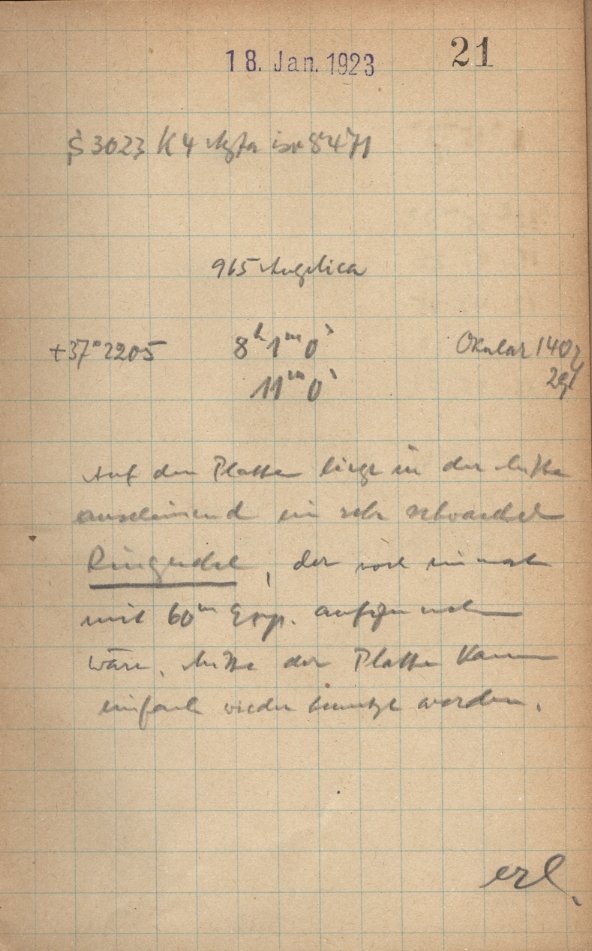 18. Jan. 1923 21
3023 K 4 Agfa iso 8471
965 Angelica
+37° 2205 8ʰ 1ᵐ 0ˢ Okular 140
11ᵐ 0ˢ
Auf der Platte liegt in der Mitte
anscheinend ein sehr schwacher
Ringnebel, der noch einmal
mit 60ᵐ Exp. aufzunehmen
wäre. Mitte der Platte kann
einfach wieder benutzt werden.
erl.